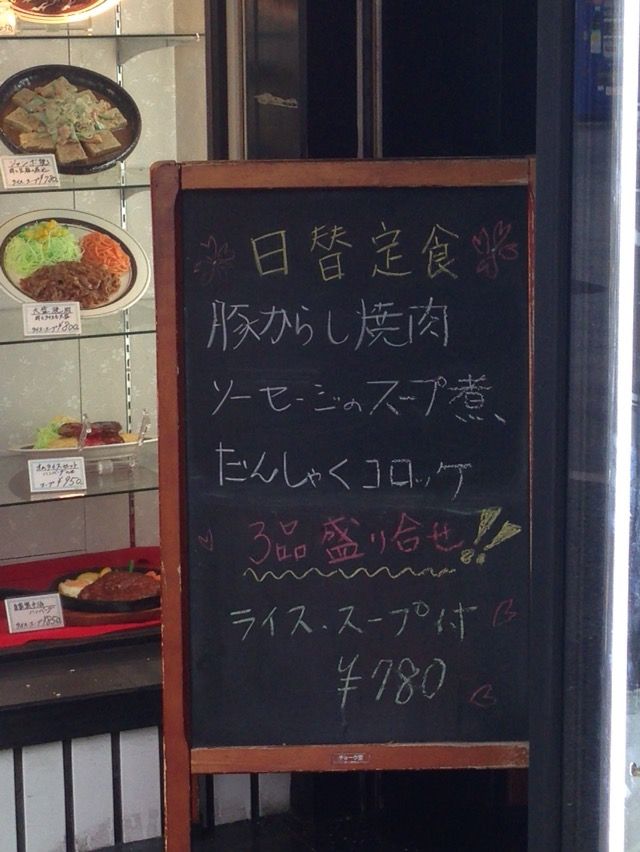 日替定食
豚からし焼肉
ソーセージのスープ煮、
だんしゃくコロッケ
3品盛り合せ!!
ライス・スープ付
¥780
ジャンボ焼
ライス・スープ ¥780
大盛焼肉
ライス・スープ ¥800
オムライスセット
スープ ¥950
ライス・スープ ¥850